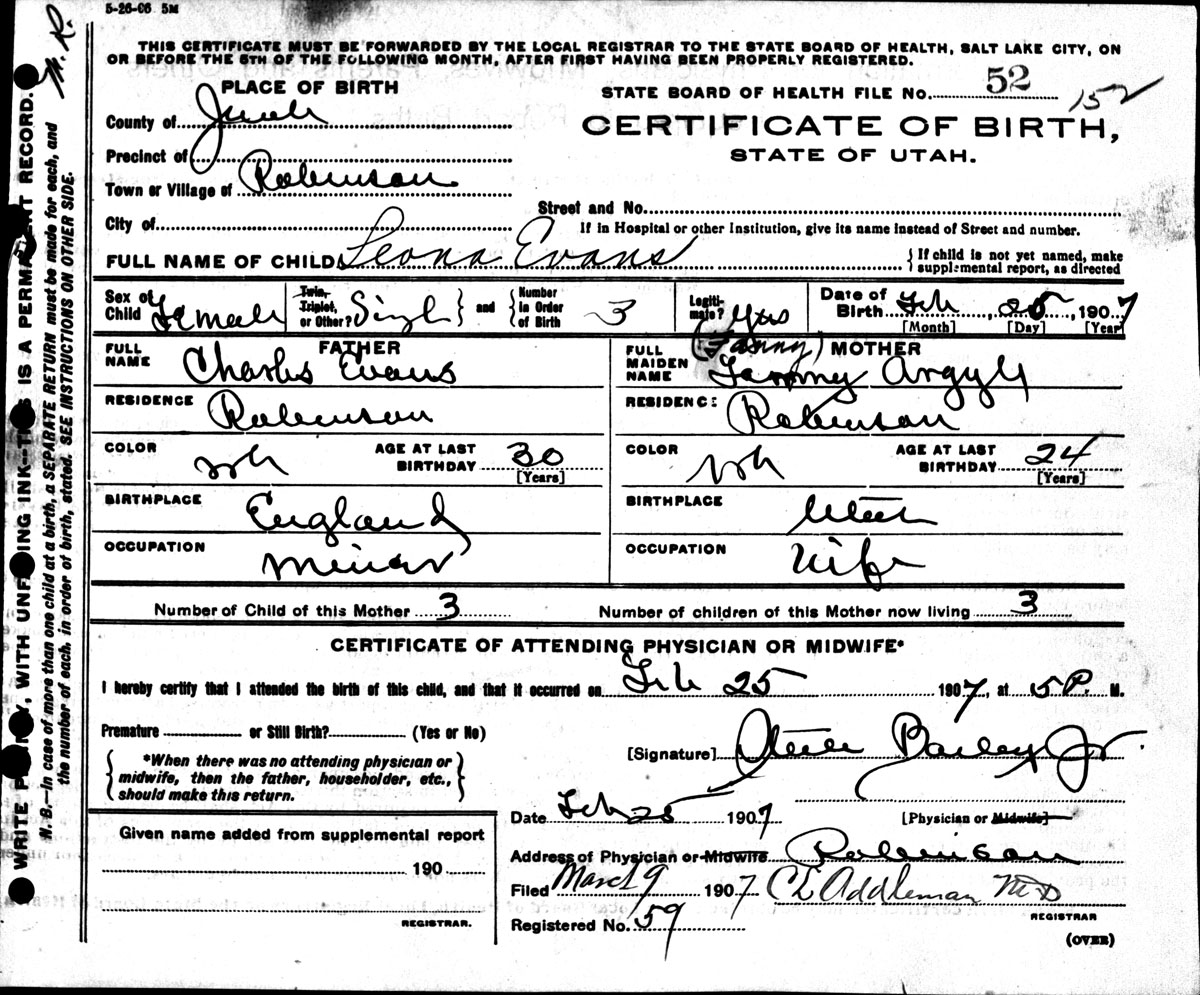 5-26-06 5M
M. R.
THIS CERTIFICATE MUST BE FORWARDED BY THE LOCAL REGISTRAR TO THE STATE BOARD OF HEALTH, SALT LAKE CITY, ON
OR BEFORE THE 5TH OF THE FOLLOWING MONTH, AFTER FIRST HAVING BEEN PROPERLY REGISTERED.
PLACE OF BIRTH
STATE BOARD OF HEALTH FILE No. 52 152
County of Juab
CERTIFICATE OF BIRTH,
STATE OF UTAH.
Precinct of
Town or Village of Robinson
Street and No.
City of
If in Hospital or other Institution, give its name instead of Street and number.
FULL NAME OF CHILD Leona Evans { If child is not yet named, make
supplemental report, as directed
Sex of Child Female Twin, Triplet, or Other? Singl } and { Number in Order of Birth 3 Legiti-mate? Yes Date of Birth Feb 25, 1907
[Month] [Day] [Year]
FATHER
FULL NAME Charles Evans
MOTHER
FULL MAIDEN NAME (Fanny) Fanny Argyle
RESIDENCE Robinson
RESIDENCE Robinson
COLOR Wh AGE AT LAST BIRTHDAY 30 [Years]
COLOR Wh AGE AT LAST BIRTHDAY 24 [Years]
BIRTHPLACE England
BIRTHPLACE Utah
OCCUPATION Miner
OCCUPATION Wife
Number of Child of this Mother 3 Number of children of this Mother now living 3
CERTIFICATE OF ATTENDING PHYSICIAN OR MIDWIFE*
I hereby certify that I attended the birth of this child, and that it occurred on Feb 25 1907, at 5 P. M.
Premature or Still Birth? (Yes or No)
[Signature] Steele Bailey Jr.
*When there was no attending physician or
midwife, then the father, householder, etc.,
should make this return.
Date Feb 25 1907 [Physician or Midwife]
Given name added from supplemental report
190
REGISTRAR.
Address of Physician or Midwife Robinson
Filed March 9 1907 C E Addleman M D
REGISTRAR
Registered No. 59
(OVER)
WRITE PLAINLY, WITH UNFADING INK—THIS IS A PERMANENT RECORD.
N. B.—In case of more than one child at a birth, a SEPARATE RETURN must be made for each, and
the number of each, in order of birth, stated. SEE INSTRUCTIONS ON OTHER SIDE.